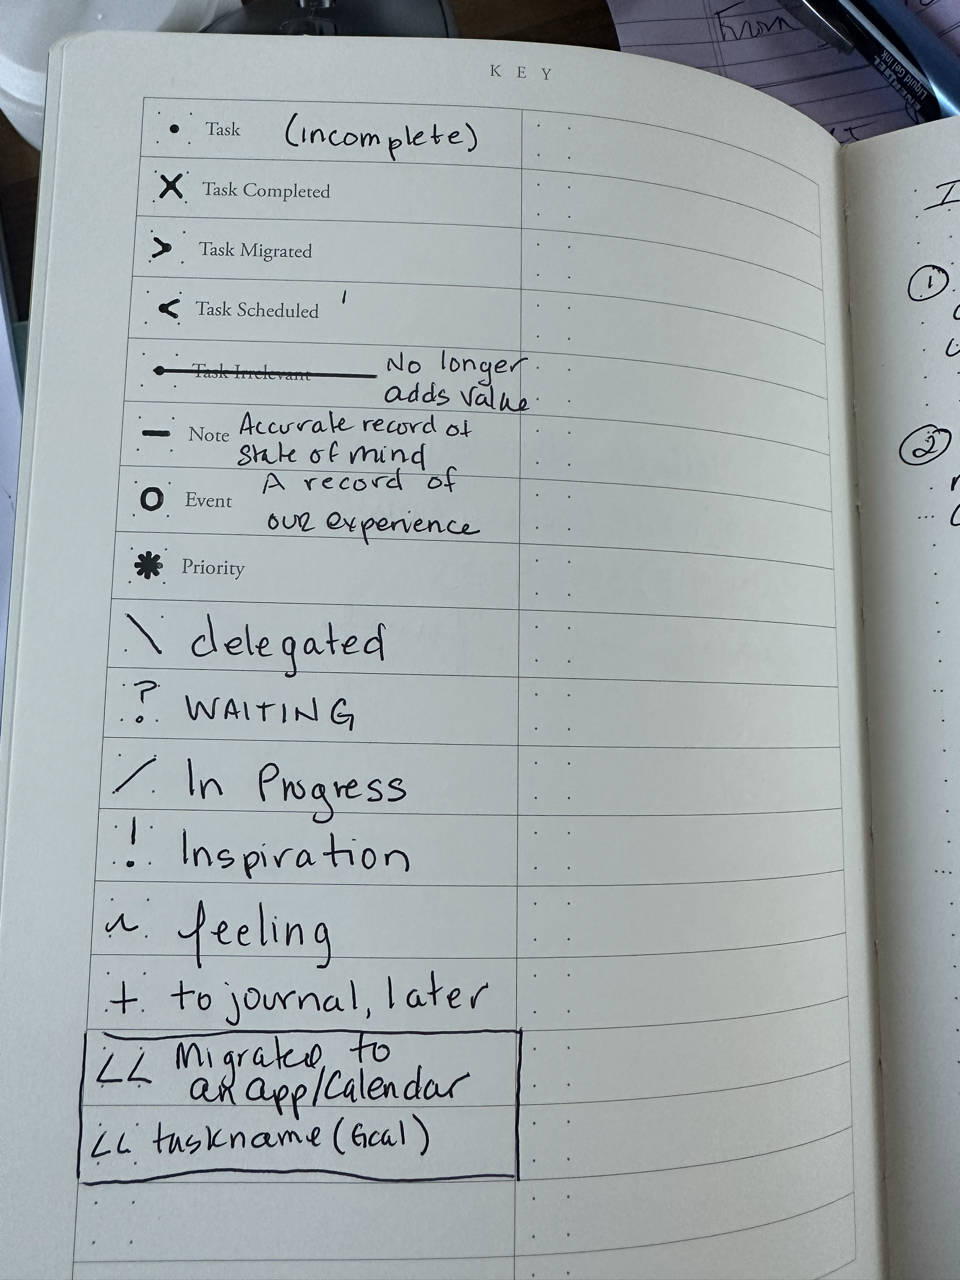 KEY
• Task (incomplete)
X Task Completed
> Task Migrated
< Task Scheduled
• Task Irrelevant No longer
adds value
– Note Accurate record of
state of mind
O Event A record of
our experience
✱ Priority
\ delegated
? WAITING
/ In Progress
! Inspiration
~ feeling
+ to journal, later
<< Migrated to
an app/Calendar
<< taskname (Gcal)
From
Liquid Gel Ink
1
2